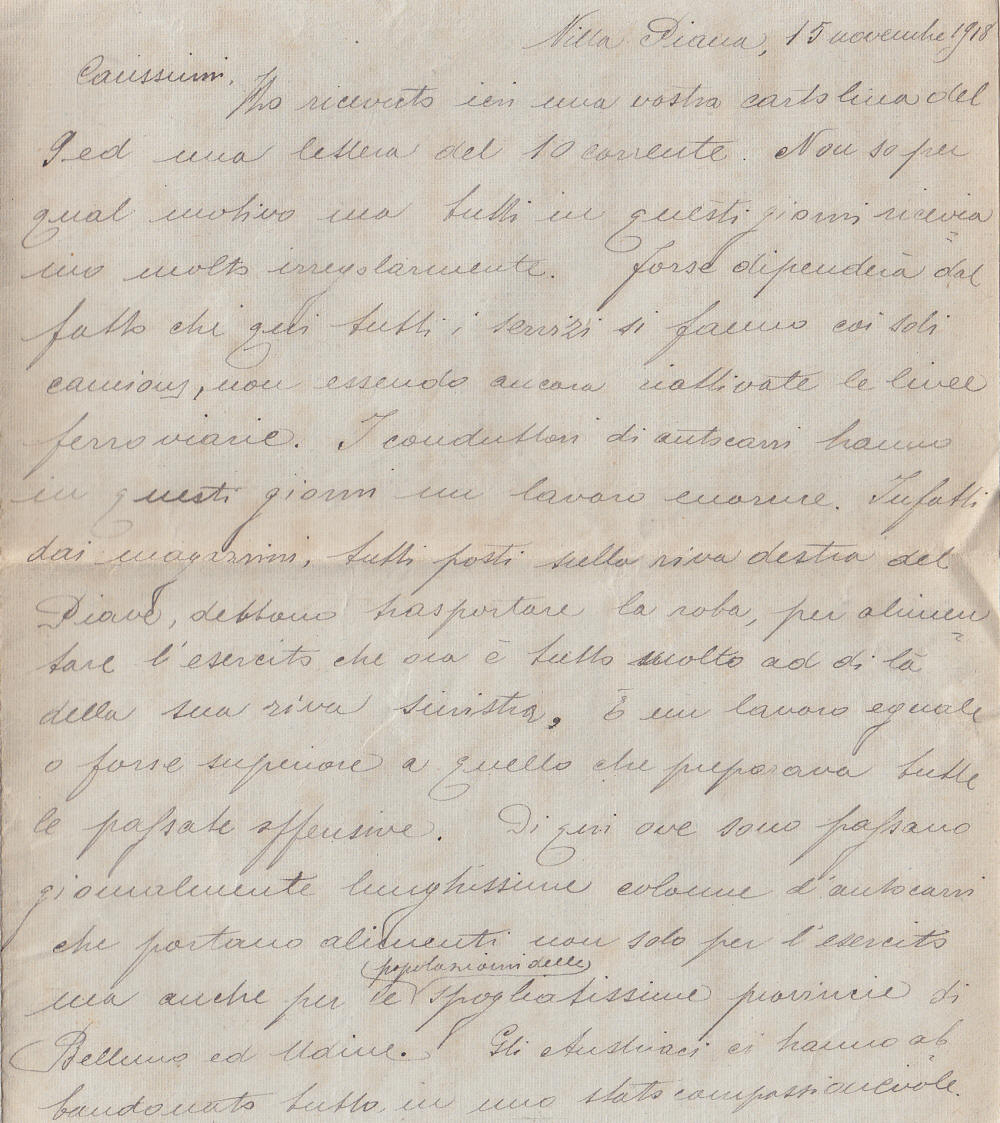 Villa Diana, 15 novembre 1918
Carissimi,
Ho ricevuto ieri una vostra cartolina del
9 ed una lettera del 10 corrente. Non so per
qual motivo ma tutti in questi giorni ricevia
mo molto irregolarmente. Forse dipenderà dal
fatto che qui tutti i servizi si fanno coi soli
camions, non essendo ancora riattivate le linee
ferroviarie. I conduttori di autocarri hanno
in questi giorni un lavoro enorme. Infatti
dai magazzini, tutti posti sulla riva destra del
Piave, debbono trasportare la roba, per alimen
tare l'esercito che ora è tutto molto ad di là
della sua riva sinistra. È un lavoro eguale
o forse superiore a quello che preparava tutte
le passate offensive. Di qui ove sono passano
giornalmente lunghissime colonne d'autocarri
che portano alimenti non solo per l'esercito
popolazioni delle
ma anche per le spogliatissime provincie di
Belluno ed Udine. Gli Austriaci ci hanno ab
bandonato tutto in uno stato compassionevole.